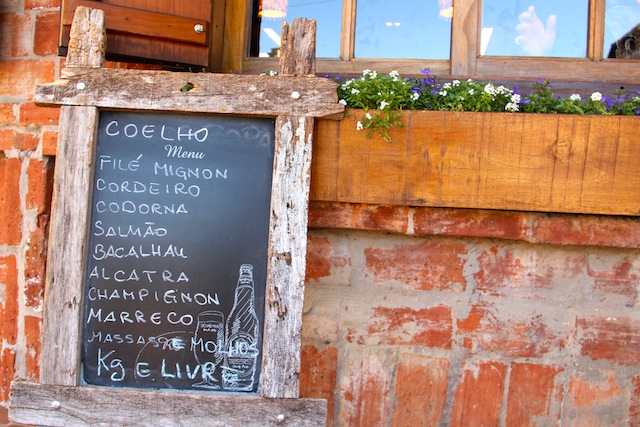 COELHO
Menu
FILÉ MIGNON
CORDEIRO
CODORNA
SALMÃO
BACALHAU
ALCATRA
CHAMPIGNON
MARRECO
MASSAS E MOLHOS
Kg E LIVRE